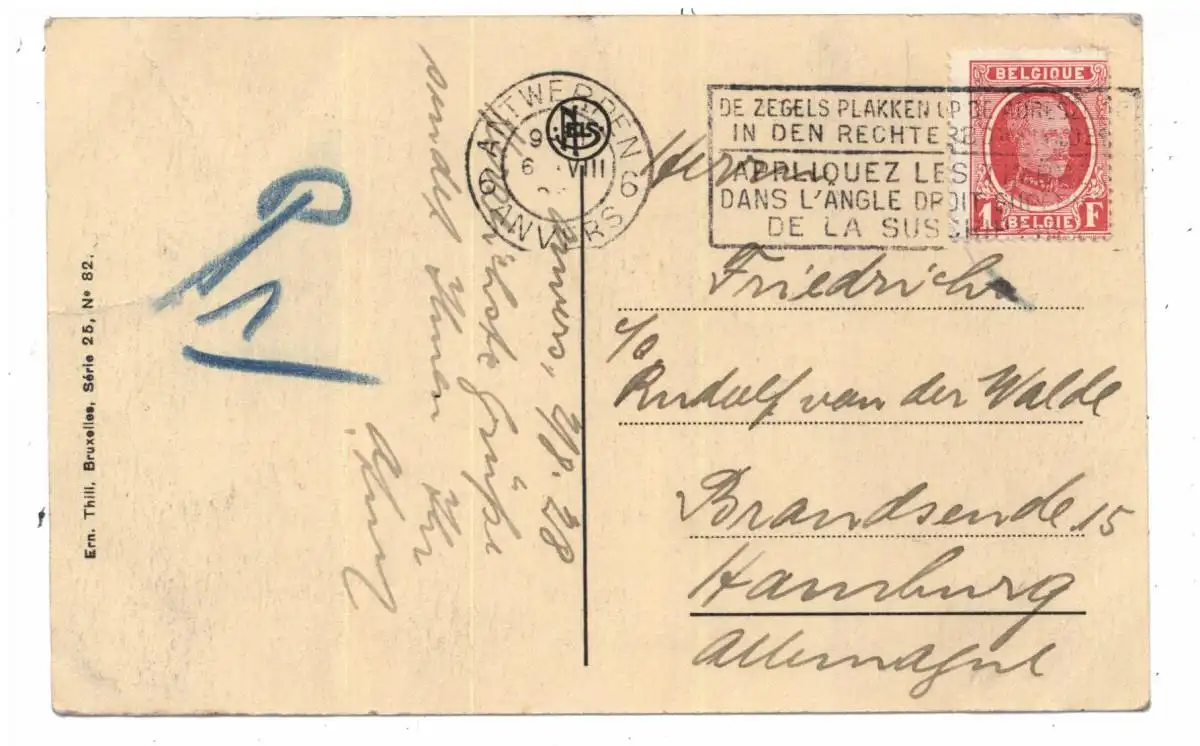 Ern. Thill, Bruxelles, Série 25, No 82.
Anvers, 6/8. 28
Herzlichste Grüße
sendet Ihnen Ihr
ANTWERPEN 6
9
6 VIII
ANVERS 6
NELS
DE ZEGELS PLAKKEN OP DE ADRES
IN DEN RECHTER
APPLIQUEZ LES
DANS L'ANGLE DROIT
DE LA SUS
BELGIQUE
1 F
BELGIE
Herrn
Friedrich
c/o
Rudolf van der Walde
Brandsende 15
Hamburg
Allemagne